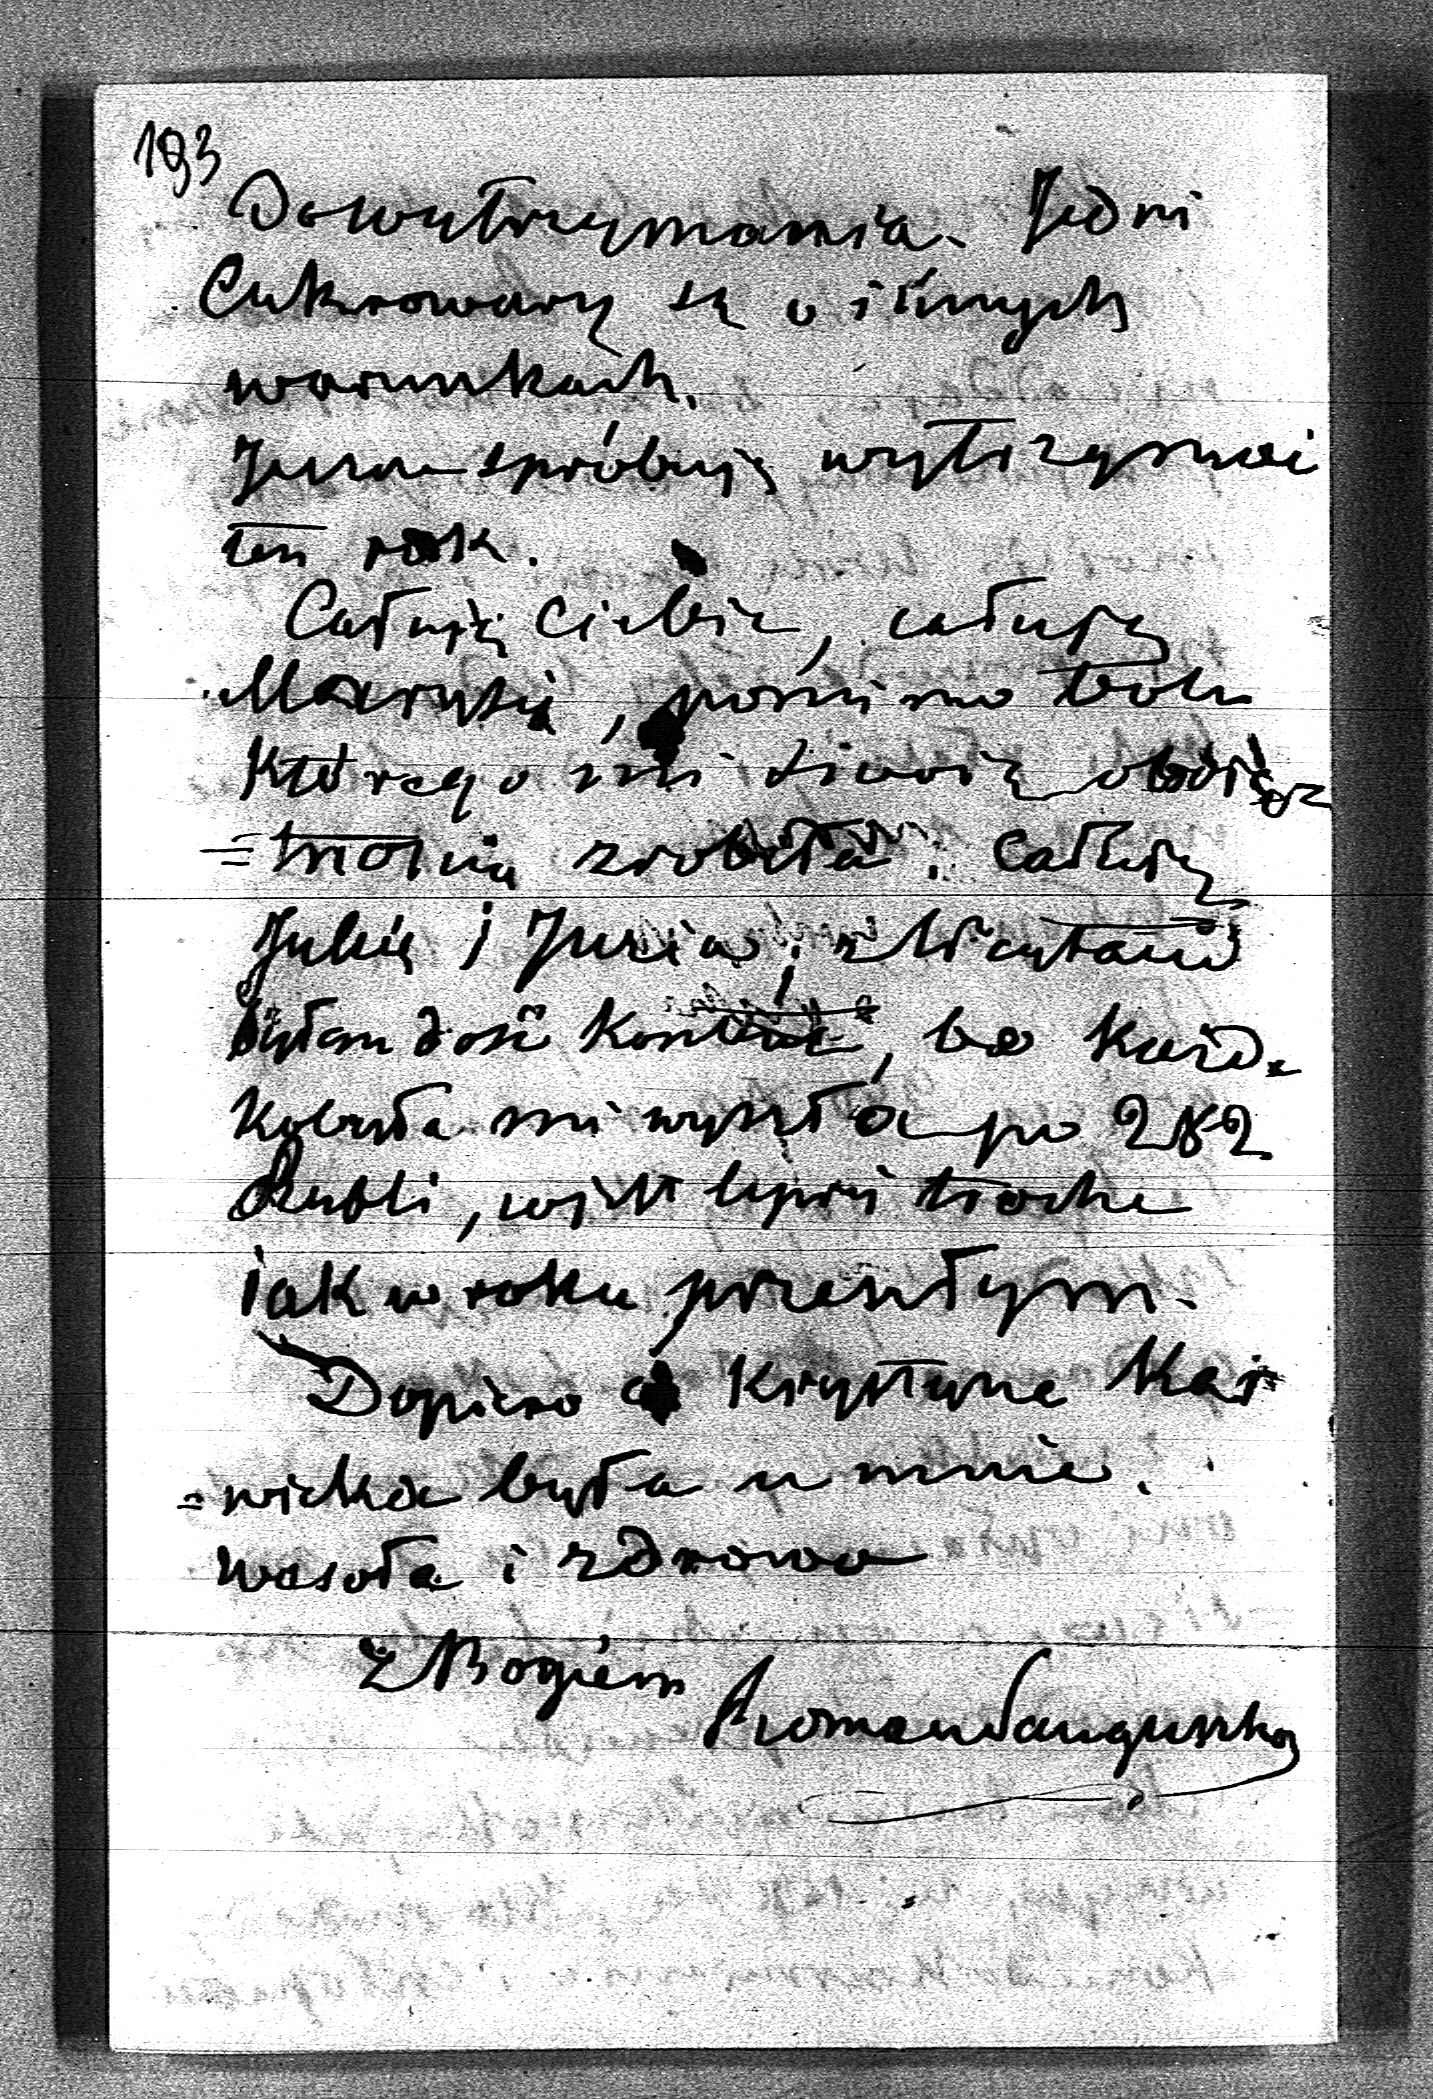 193
Do wytrzymania. Jedni
Cukrowary są w innych
warunkach.
spróbuję wytrzymać
ten rok.
Całuję Ciebie, całuję
Marysię, pomimo bolu
którego mi swoią
zrobiła. Całuję
Julię i Juzia; z licytacii
byłem dość kontent, bo każda
kobyła mi wyszła po 282
Rubli, więc lepiej trochę
iak w roku przeszłym.
Dopiero co Krystyna Kar
=wicka była u mnie.
wesoła i zdrowa
z Bogiem
Roman Sanguszko